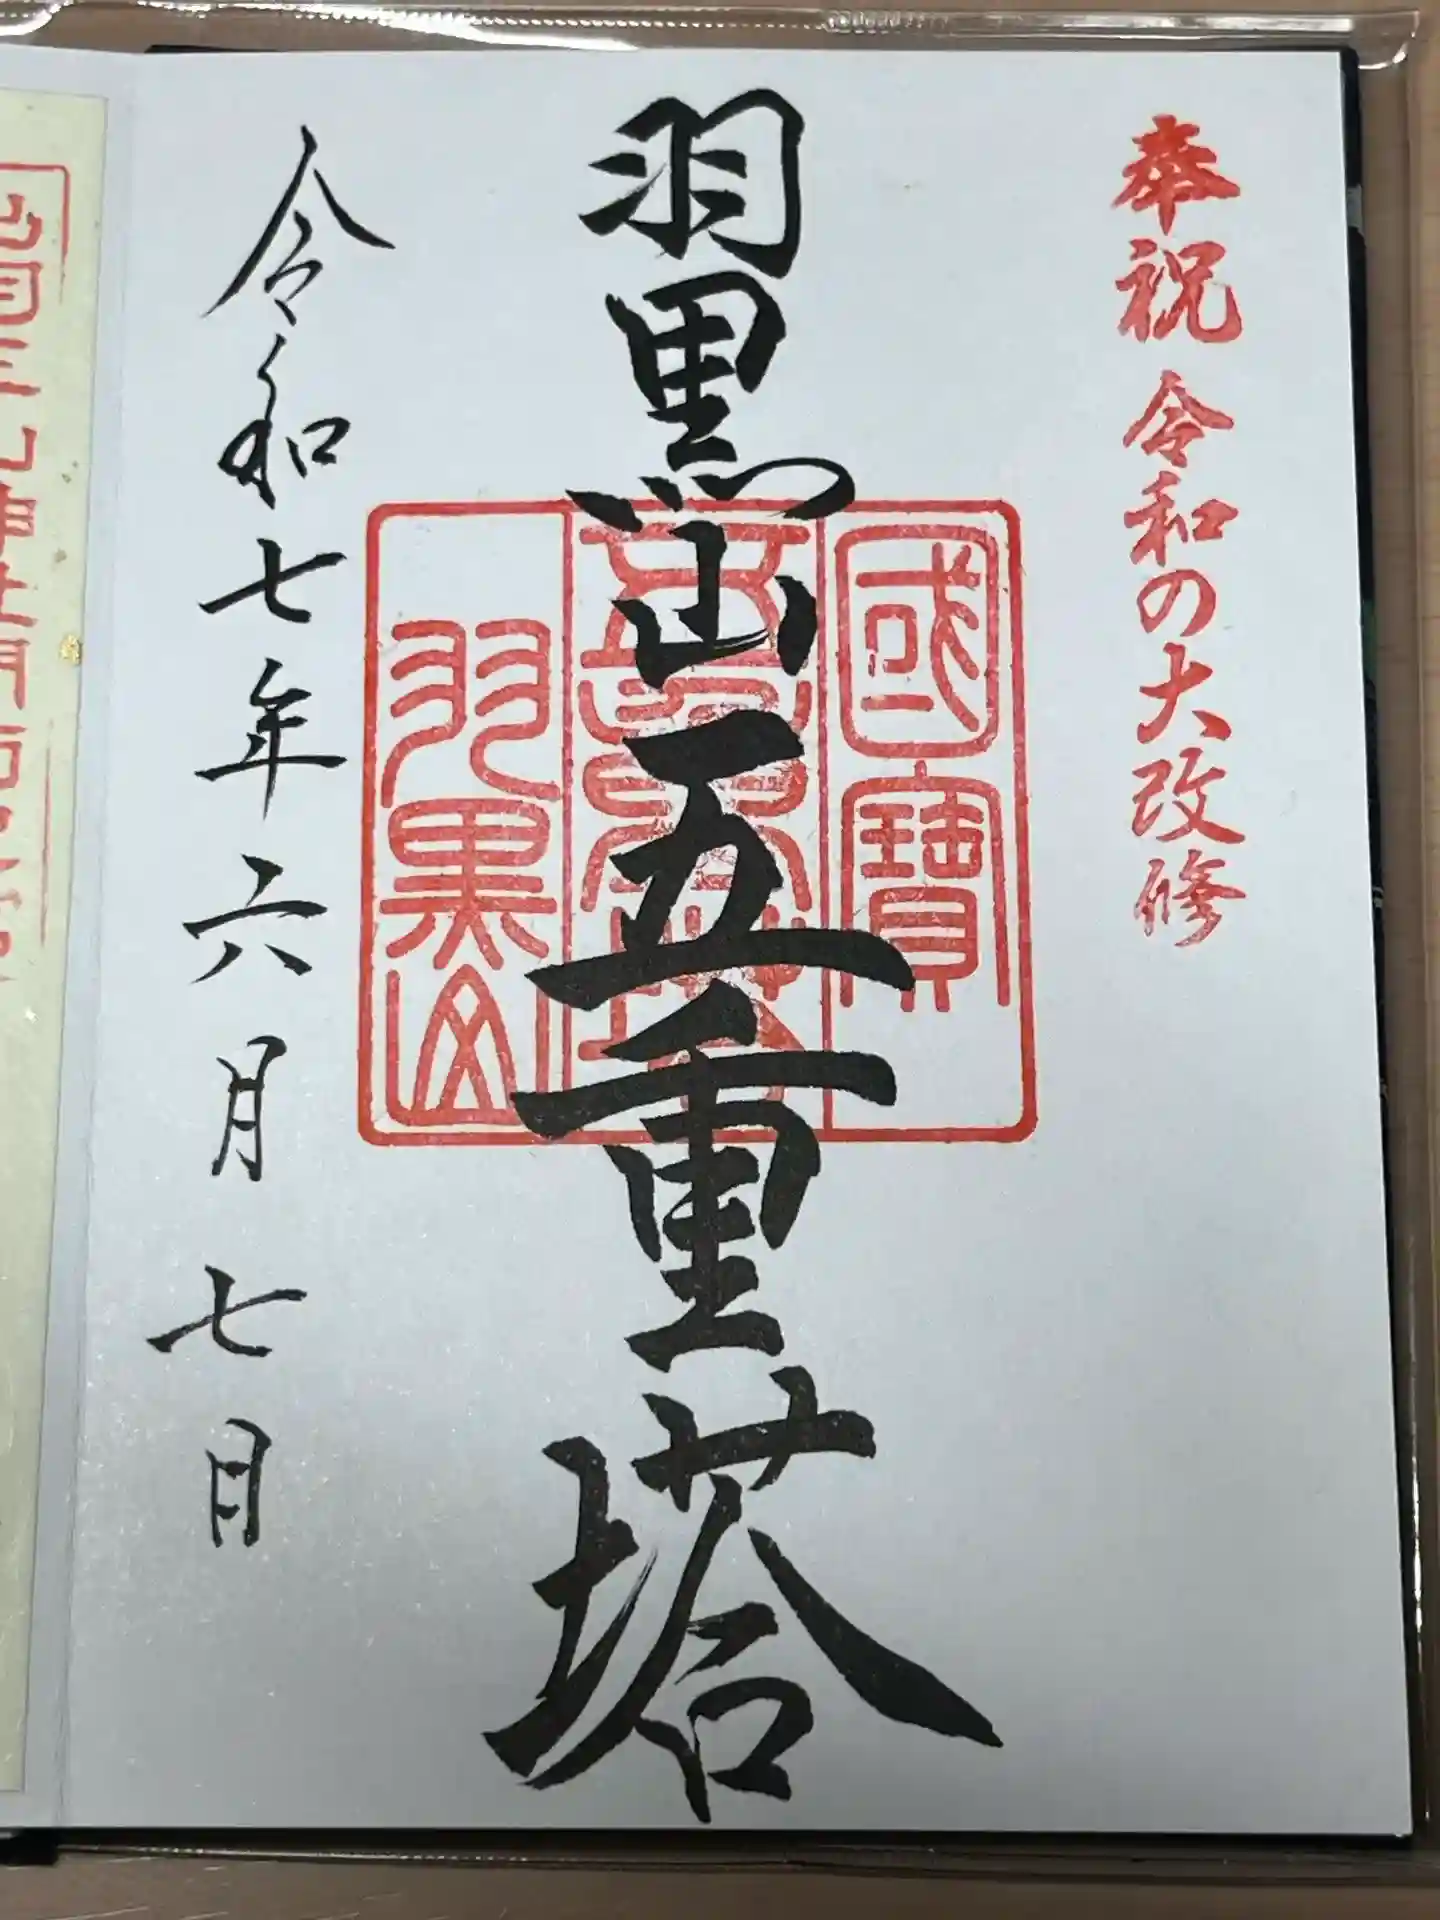 奉祝 令和の大改修
國寶
五重塔
羽黒山
羽黒山五重塔
令和七年六月七日